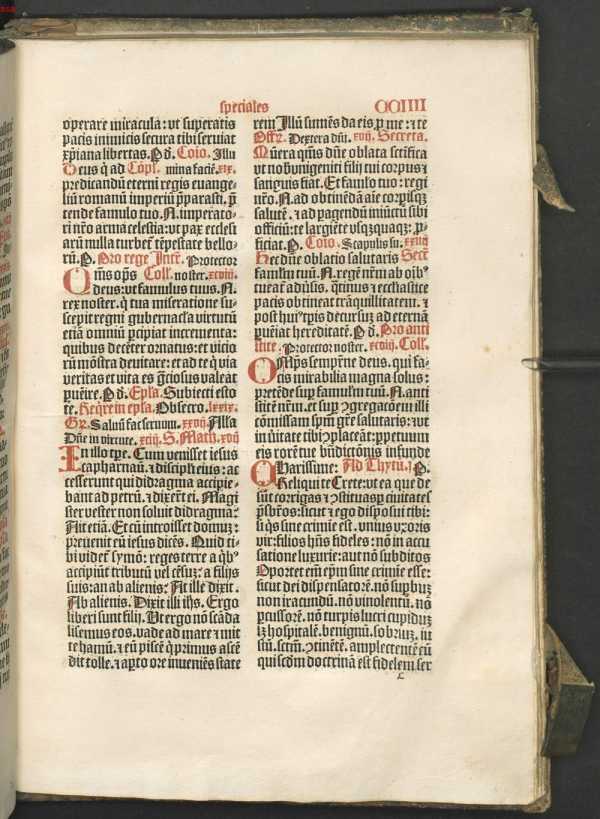 speciales
CCIIII
operare miracula: vt superatis
pacis inimicis secura tibi seruiat
xp̄iana libertas. P. d. Cōio. Illū
Deus q̄ ad Cōpl̄. mina faciē. xix.
predicandū eterni regis euange-
liū romanū imperiū p̄parasti. p̄
tende famulo tuo. N. imperato-
ri nr̄o arma celestia: vt pax ecclesi
arū nulla turbet᷑ tēpestate bello-
rū. P. Pro rege Intr̄. Protector
Qm̄s op̄s Coll̄. noster. xcviii.
deus: vt famulus tuus. N.
rex noster. q̄ tua miseratione su-
scepit regni gubernacl̄a virtutū
etiā omniū p̄cipiat incrementa:
quibus decēter ornatus: et vicio
rū mōstra deuitare: et ad te q̄ via
veritas et vita es gr̄ciosus valeat
puēire. P. d. Epl̄a. Subiecti esto
te. Reqͥre in epl̄a. Obsecro. lxxix.
Gr̄. Saluū fac seruum. xxvii. Alla
Dn̄e in virtute. xciij. S. Math. xvij
In illo tp̄e. Cum venisset iesus
capharnaū: et discipl̄i eius: ac
cesserunt qui didragma accipie-
bant ad petrū. ⁊ dixer̄t ei. Magi
ster vester non soluit didragma:
Ait etiā. Et cū introisset domuꝫ:
preuenit eū iesus dicēs. Quid ti-
bi videt᷑ symō: reges terre a qͥbꝰ
accipiūt tributū vel cēsuꝫ: a filijs
suis: an ab alienis: At ille dixit.
Ab alienis. Dixit illi ih̄s. Ergo
liberi sunt filij. Ut ergo nō scāda
lisemus eos. vade ad mare ⁊ mit
te hamū. ⁊ eū piscē q̄ primus ascē
dit tolle. ⁊ apto ore inuenies state
rem Illū sumēs da eis p̄ me: ⁊ te
Offr̄. Dextera dn̄i. xvij. Secreta.
Mūera qs̄ums dn̄e oblata sctifica
vt nobis vnigeniti filij tui corpus ⁊
sanguis fiat. Et famlo tuo: regi
nr̄o. N. ad obtinēdā aīe corpisqꝫ
salutē. ⁊ ad pagendū iniūctū sibi
officiū: te largiēte vsqꝫquaqꝫ: p̄-
ficiat. P. Cōio. Scapulis su. xxvii
Hec dn̄e oblatio salutaris Secr̄
famlm tuū. N. regē nr̄m ab oībꝰ
tueat᷑ aduersis. q̄tinus ⁊ ecclīastice
pacis obtineat trāquillitatem. ⁊
post huiꝰ tp̄is decursuꝫ ad eternā
pueniat hereditatē. P. d. Pro anti
stite. Protector noster. xcviij. Coll̄.
OMp̄s semp̄rne deus. qui fa-
cis mirabilia magna solus:
pretēde sup famulm tuū. N. anti
stitē nr̄m. et sup ꝯgregacōem illi
cōmissam spm̄ gr̄e salutaris: ⁊ vt
in v̄itate tibi ꝯplaceāt: ppetuum
eis rorē tue bn̄dictōnis infunde
Charissime: Ad Thytū. j. P.
Reliqui te Crete: vt ea que de
sūt corrigas ⁊ ꝯstituas p ciuitates
p̄sbr̄os: sicut ⁊ ego disposui tibi:
si qͥs sine crimie est. vnius vxoris
vir: filios hn̄s fideles: nō in accu
satione luxurie: aut nō subditos
Oportet em̄ ep̄m sine crimie esse:
sicut dei dispensatorē. nō supbuꝫ
non iracundū. nō vinolentū. nō
pcussorē. nō turpis lucri cupiduꝫ
sꝫ hospitalē. benignū. sobriuꝫ. iu
stū. sctm̄. ꝯtinētē. amplectentē eū
qui scdm doctrinā est fidelem ser
c